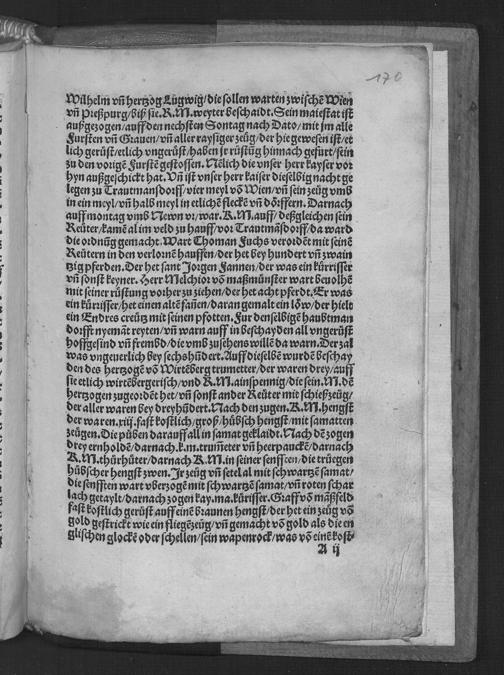 170
Wilhelm vñ hertzog Ludwig/die sollen warten zwischē Wien
vñ Preßpurg/biß sie.K.M.weyter beschaidt.Sein maiestat ist
außgezogen/auff den nechsten Sontag nach Dato/mit jm alle
Fursten vñ Grauen/vñ aller raysiger zeug/der hie gewesen ist/et
lich gerüst/etlich vngerüst/haben jr rüstūg hinnach gefurt/sein
zu den vorigē Furstē gestossen.Nēlich die vnser herr kayser vor
hyn außgeschickt hat.Vñ ist vnser herr kaiser dieselbig nacht ge
legen zu Trautmansdorff/vier meyl vō Wien/vñ sein zeug vmb
in ein meyl/vñ halb meyl in etlichē fleckē vñ dörffern.Darnach
auff montag vmb Newn vr/war.K.M.auff/deßgleichen sein
Reüter/kamē al im veld zu hauff/vor Trautmāsdorff/da ward
die ordnūg gemacht.Wart Thoman Fuchs verordēt mit seinē
Reütern in den verlornē hauffen/der het bey hundert vñ zwain
tzig pferden.Der het sant Jorgen Fannen/der was ein kürrisser
vñ sonst keyner.Herr Melchior vō maßmünster wart beuolhē
mit seiner rüstung vorher zu ziehen/der het acht pferdt.Er was
ein kürisser/het einen altē fanēn/daran gemalt ein löw/der hielt
ein Endres creütz mit seinen pfotten.Fur denselbigē haubtman
dorfft nyemāt reyten/vñ warn auff in beschayden all vngerüst
hoffgesind vñ frembd/die vmb zusehens willē da warn.Der zal
was vngeuerlich bey sechshūdert.Auff dieselbe wurdē beschay
den des hertzogē vō Wirtēberg trumetter/der waren drey/auff
sie etlich wirtēbergerisch/vnd K.M.ainspennig/die sein.M.dē
hertzogen zugeordēt het/vñ sonst ander Reüter mit schießzeüg/
der aller waren bey dreyhūdert.Nach den zugen.K.M.hengst
der waren.xiij.fast kostlich/groß/hübsch hengst/mit samatten
zeügen.Die püben darauff all in samat geklaidt.Nach dē zogen
drey ernholdē/darnach.k.m.trum̃eter vñ heerpauckē/darnach
K.M.thürhütter/darnach K.M.in seiner senfften/die trüegen
hübscher hengst zwen.Jr zeüg vñ setel al mit schwartzē samat/
die senfften wart vberzogē mit schwartzē samat/vñ roten schar
lach getaylt/darnach zogen kay.ma.kürisser.Graff vō māßfeld
fast kostlich gerüst auff einē braunen hengst/der het ein zeüg vō
gold gestrickt wie ein fliegēzeüg/vñ gemacht vō gold als die en
glischen glockē oder schellen/sein wapenrock/was vō einē kost-
A ij